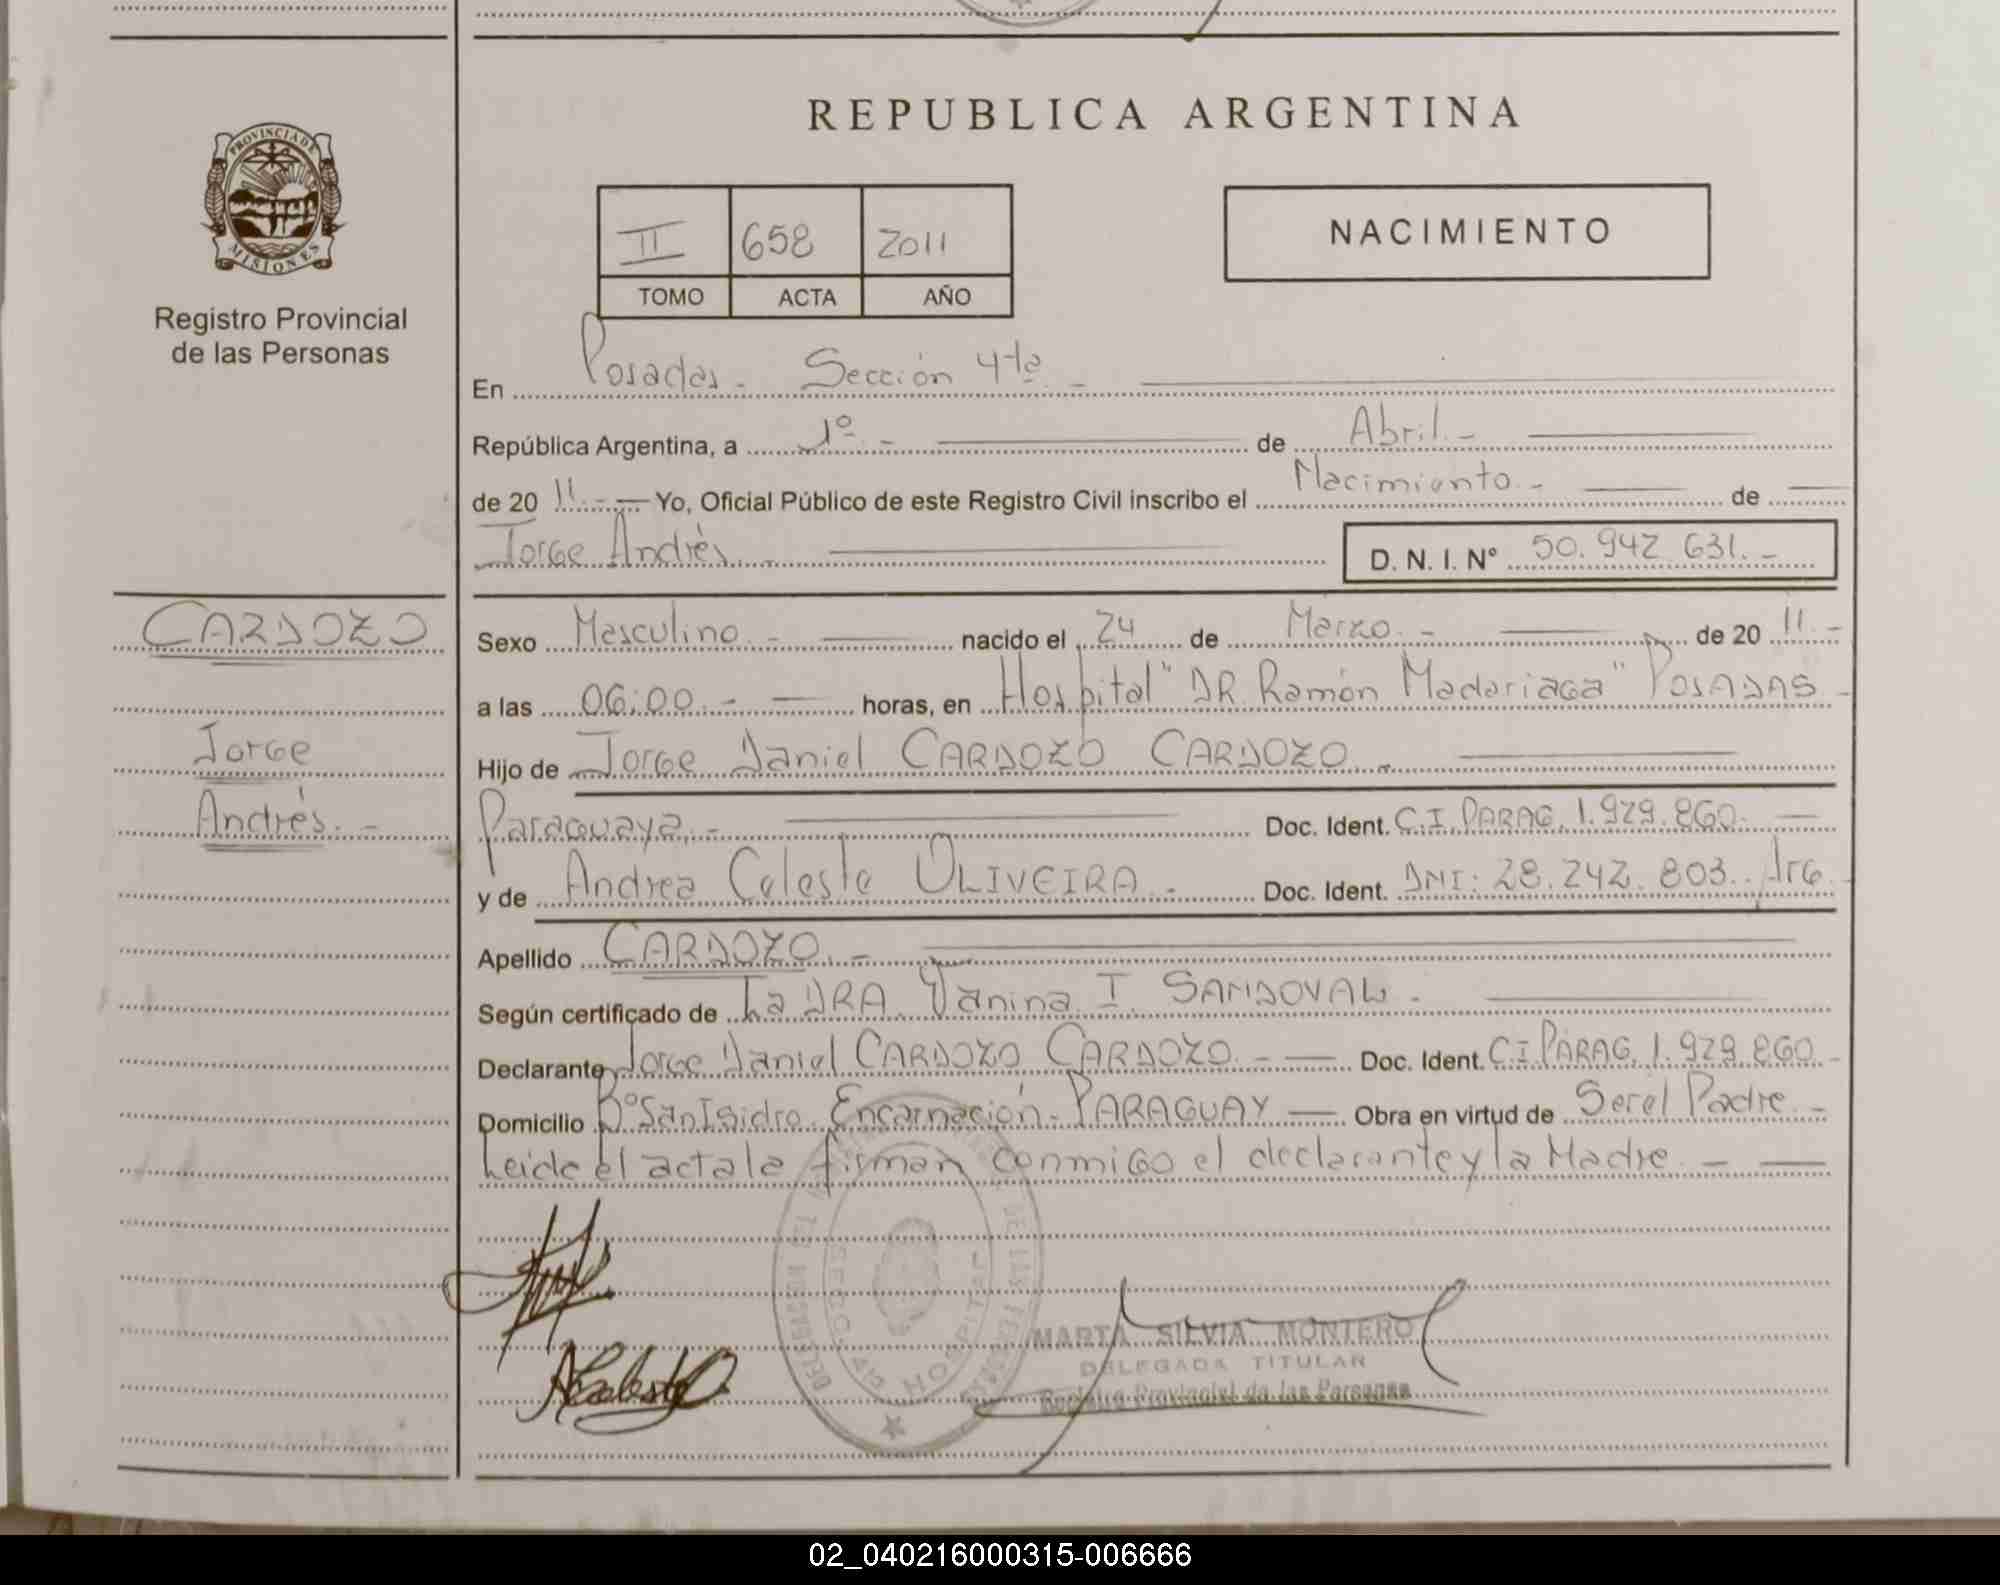 REPUBLICA ARGENTINA
PROVINCIA DE
MISIONES
Registro Provincial
de las Personas
II 658 2011
TOMO ACTA AÑO
NACIMIENTO
En Posadas.- Sección 4ta.-
República Argentina, a 1º.- de Abril.-
de 20 11.- Yo, Oficial Público de este Registro Civil inscribo el Nacimiento.- de
Jorge Andrés.- D. N. I. Nº 50.942 631.-
CARDOZO
Jorge
Andrés.-
Sexo Masculino.- nacido el 24 de Marzo.- de 20 11.-
a las 06:00.- horas, en Hospital "DR. Ramón Madariaga" POSADAS.-
Hijo de Jorge Daniel CARDOZO CARDOZO.-
Paraguaya.- Doc. Ident. C.I. PARAG. 1.929.860.-
y de Andrea Celeste OLIVEIRA.- Doc. Ident. DNI: 28.242.803. Arg.
Apellido CARDOZO.-
Según certificado de La DRA. Vanina I. SANDOVAL.-
Declarante Jorge Daniel CARDOZO CARDOZO.- Doc. Ident. C.I. PARAG. 1.929.860.-
Domicilio Bº San Isidro. Encarnación- PARAGUAY Obra en virtud de Ser el Padre.-
Leida el acta la firman conmigo el declarante y la Madre.-
A Celeste O
SECC. 4ta HOSPITAL
MARTA SILVIA MONTERO
DELEGADA TITULAR
Registro Provincial de las Personas
02_040216000315-006666